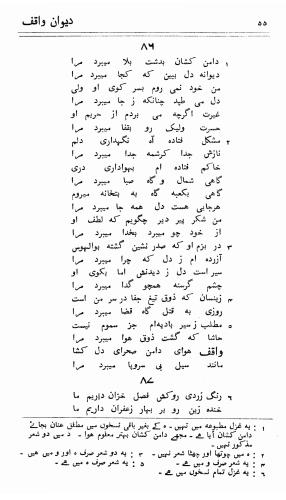 ۵۵ دیوان واقف
۸۶
۱ دامن کشان بدشت بلا میبرد مرا
دیوانه دل ببین که کجا میبرد مرا
من خود نمی روم بسر کوی او ولی
دل می طپد چنانکه ز جا میبرد مرا
غیرت اگرچه می بردم از حریم او
حسرت ولیک رو بقفا میبرد مرا
۲ مشکل فتاده آه نگهداری دلم
نازش جدا کرشمه جدا میبرد مرا
خاکم فتاده ام بهواداری دری
گاهی شمال و گاه صبا میبرد مرا
گاهی بکعبه گاه به بتخانه میروم
هرجایی هست دل همه جا میبرد مرا
من شکر پیر دیر چگویم که لطف او
از خود چو میبرد بخدا میبرد مرا
۳ در بزم او که صدر نشین گشته بوالهوس
آزرده ام ز دل که چرا میبرد مرا
سیر است دل ز دیدنش اما بکوی او
چشم گرسنه همچو گدا میبرد مرا
۴ زینسان که ذوق تیغ جفا در سر من است
روزی به قتل گاه قضا میبرد مرا
۵ مطلب ز سیر بادیه‌ام جز سموم نیست
حاشا که گشت ذوق هوا میبرد مرا
واقف هوای دامن صحرای دل کشا
مانند سیل بی سروپا میبرد مرا
۸۷
۶ رنگ زردی روکش فصل خزان داریم ما
خنده زین رو بر بهار زعفران داریم ما
۱ : یه غزل مطبوعه میں نہیں۔ ه کے بغیر باقی نسخوں میں مطلق عنان بجائے
دامن کشان آیا ہے۔ مجھے دامن کشان بہتر معلوم ہوا۔ د میں دو شعر
مذکور نہیں۔
۲ : ه میں چوتھا اور چھٹا شعر نہیں۔ ۳ : یہ دو شعر صرف ه اور و میں ہیں۔
۴ : یہ شعر صرف ه میں ہے۔ ۵ : یہ شعر صرف ه میں ہے۔
۶ : یہ غزل تمام نسخوں میں ہے۔